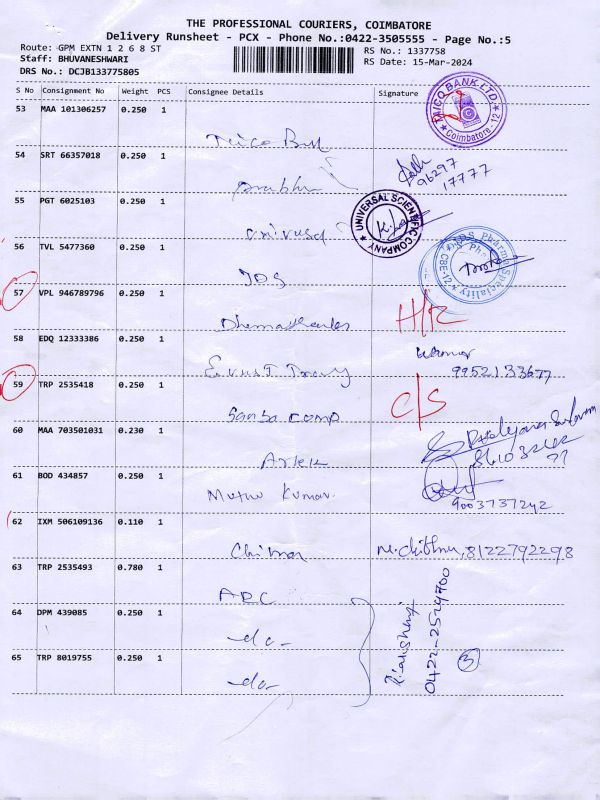 THE PROFESSIONAL COURIERS, COIMBATORE
Delivery Runsheet - PCX - Phone No.:0422-3505555 - Page No.:5
Route: GPM EXTN 1 2 6 8 ST
RS No.: 1337758
Staff: BHUVANESHWARI
RS Date: 15-Mar-2024
DRS No.: DCJB133775805
S No Consignment No Weight PCS Consignee Details Signature
53 MAA 101306257 0.250 1
TAICO BANK LTD.
* Coimbatore-12 *
Taico Bank
54 SRT 66357018 0.250 1
96297
17777
Prabhu
55 PGT 6025103 0.250 1
UNIVERSAL SCIENTIFIC COMPANY
universal
56 TVL 5477360 0.250 1
JDS Pharma Speciality
CBE-12
JDS
57 VPL 946789796 0.250 1
H/R
58 EDQ 12333386 0.250 1
Kumar
9952133677
59 TRP 2535418 0.250 1
C/S
Sanba comp
60 MAA 703501031 0.230 1
61 BOD 434857 0.250 1
Muthu Kumar
9003737242
62 IXM 506109136 0.110 1
8122792298
63 TRP 2535493 0.780 1
ADC
64 DPM 439085 0.250 1
-do-
0422-2529700
3
65 TRP 8019755 0.250 1
-do-